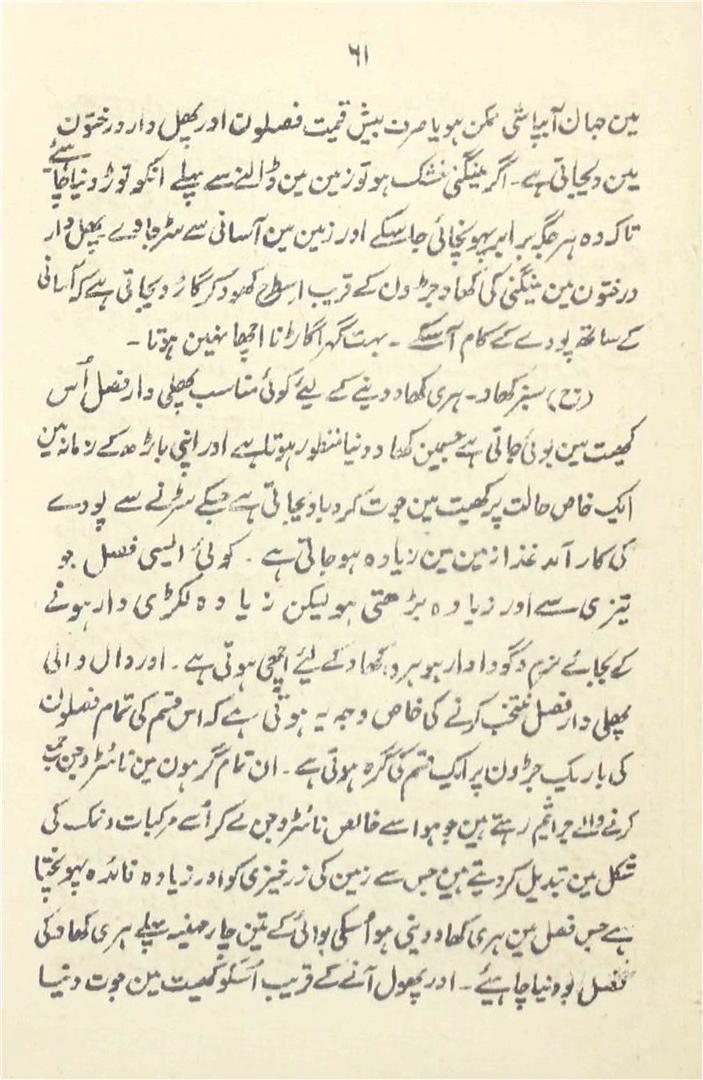 ۶۱
مین جہان آبپاشی ممکن ہو یا صرف بیش قیمت فصلون اور پھل دار درختون
مین دیجاتی ہے۔ اگر مینگنی خشک ہو تو زمین مین ڈالنے سے پہلے انکو توڑ دنیا چاہئے
تاکہ وہ ہر جگہ برابر پہونچائی جاسکے اور زمین مین آسانی سے سڑ جاوے پھل دار
درختون مین مینگنی کی کھاد جڑون کے قریب اسطرح کھود کر گاڑ دیجاتی ہے کہ آسانی
کے ساتھ پودے کے کام آسکے ۔ بہت گہرا گاڑنا اچھا نہین ہوتا ۔
(ح) سبز کھاد۔ ہری کھاد دینے کے لیئے کوئی مناسب پھلی دار فصل اُس
کھیت مین بوئی جاتی ہے جسمین کھاد دونیا منظور ہوتا ہے اور اپنی باڑھ کے زمانہ مین
ایک خاص حالت پر کھیت مین جوت کر دبا دیجاتی ہے جسکے سڑنے سے پودے
کی کار آمد غذا زمین مین زیادہ ہو جاتی ہے ۔ کوئی ایسی فصل جو
تیزی سے اور زیادہ بڑھتی ہو لیکن زیادہ لکڑی دار ہونے
کے بجائے نرم و گودا دار ہو ہری کھاد کے لیئے اچھی ہوتی ہے ۔ اور دال والی
پھلی دار فصل منتخب کرنے کی خاص وجہ یہ ہوتی ہے کہ اس قسم کی تمام فصلون
کی باریک جڑون پر ایک قسم کی گرہ ہوتی ہے ۔ ان تمام گرہون مین نائٹروجن جمع
کرنے والے جراثیم رہتے ہین جو ہوا سے خالص نائٹروجن لے کر اُسے مرکبات و نمک کی
شکل مین تبدیل کر دیتے ہین جس سے زمین کی زرخیزی کو اور زیادہ فائدہ پہونچتا
ہے جس فصل مین ہری کھاد دینی ہو اُسکی بوائی کے تین چار مہینہ پہلے ہری کھاد کی
فصل بودنیا چاہیئے ۔ اور پھول آنے کے قریب اُسکو کھیت مین جوت دنیا